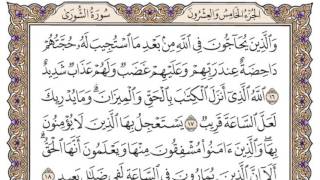 الجزء الخامس والعشرون
سورة الشورى
وَالَّذِينَ يُحَاجُّونَ فِي اللَّهِ مِنْ بَعْدِ مَا اسْتُجِيبَ لَهُ حُجَّتُهُمْ
دَاحِضَةٌ عِنْدَ رَبِّهِمْ وَعَلَيْهِمْ غَضَبٌ وَلَهُمْ عَذَابٌ شَدِيدٌ
١٦ اللَّهُ الَّذِي أَنْزَلَ الْكِتَابَ بِالْحَقِّ وَالْمِيزَانَ وَمَا يُدْرِيكَ
لَعَلَّ السَّاعَةَ قَرِيبٌ ١٧ يَسْتَعْجِلُ بِهَا الَّذِينَ لَا يُؤْمِنُونَ
بِهَا وَالَّذِينَ آمَنُوا مُشْفِقُونَ مِنْهَا وَيَعْلَمُونَ أَنَّهَا الْحَقُّ
أَلَا إِنَّ الَّذِينَ يُمَارُونَ فِي السَّاعَةِ لَفِي ضَلَالٍ بَعِيدٍ ١٨